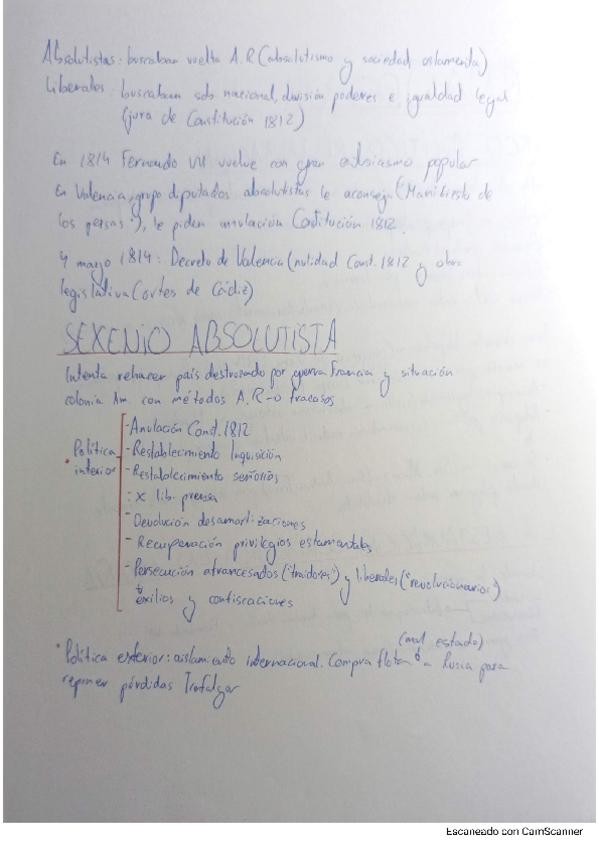 Absolutistas: buscaban vuelta A.R (absolutismo y sociedad estamental)
Liberales: buscaban sob. nacional, división poderes e igualdad legal
(jura de Constitución 1812)
En 1814 Fernando VII vuelve con gran entusiasmo popular
En Valencia, grupo diputados absolutistas le aconseja ("Manifiesto de
los persas"), le piden anulación Constitución 1812.
4 mayo 1814: Decreto de Valencia (nulidad Const. 1812 y obra
legislativa Cortes de Cádiz)
SEXENIO ABSOLUTISTA
Intenta rehacer país destrozado por guerra Francia y situación
colonia Am. con métodos A.R → fracasos
• Política interior
- Anulación Const. 1812
- Restablecimiento Inquisición
- Restablecimiento señoríos
: X lib. prensa
- Devolución desamortizaciones
- Recuperación privilegios estamentales
- Persecución afrancesados ("traidores") y liberales ("revolucionarios")
exilios y confiscaciones
(mal estado)
• Política exterior: aislamiento internacional. Compra flota a Rusia para
reponer pérdidas Trafalgar
Escaneado con CamScanner